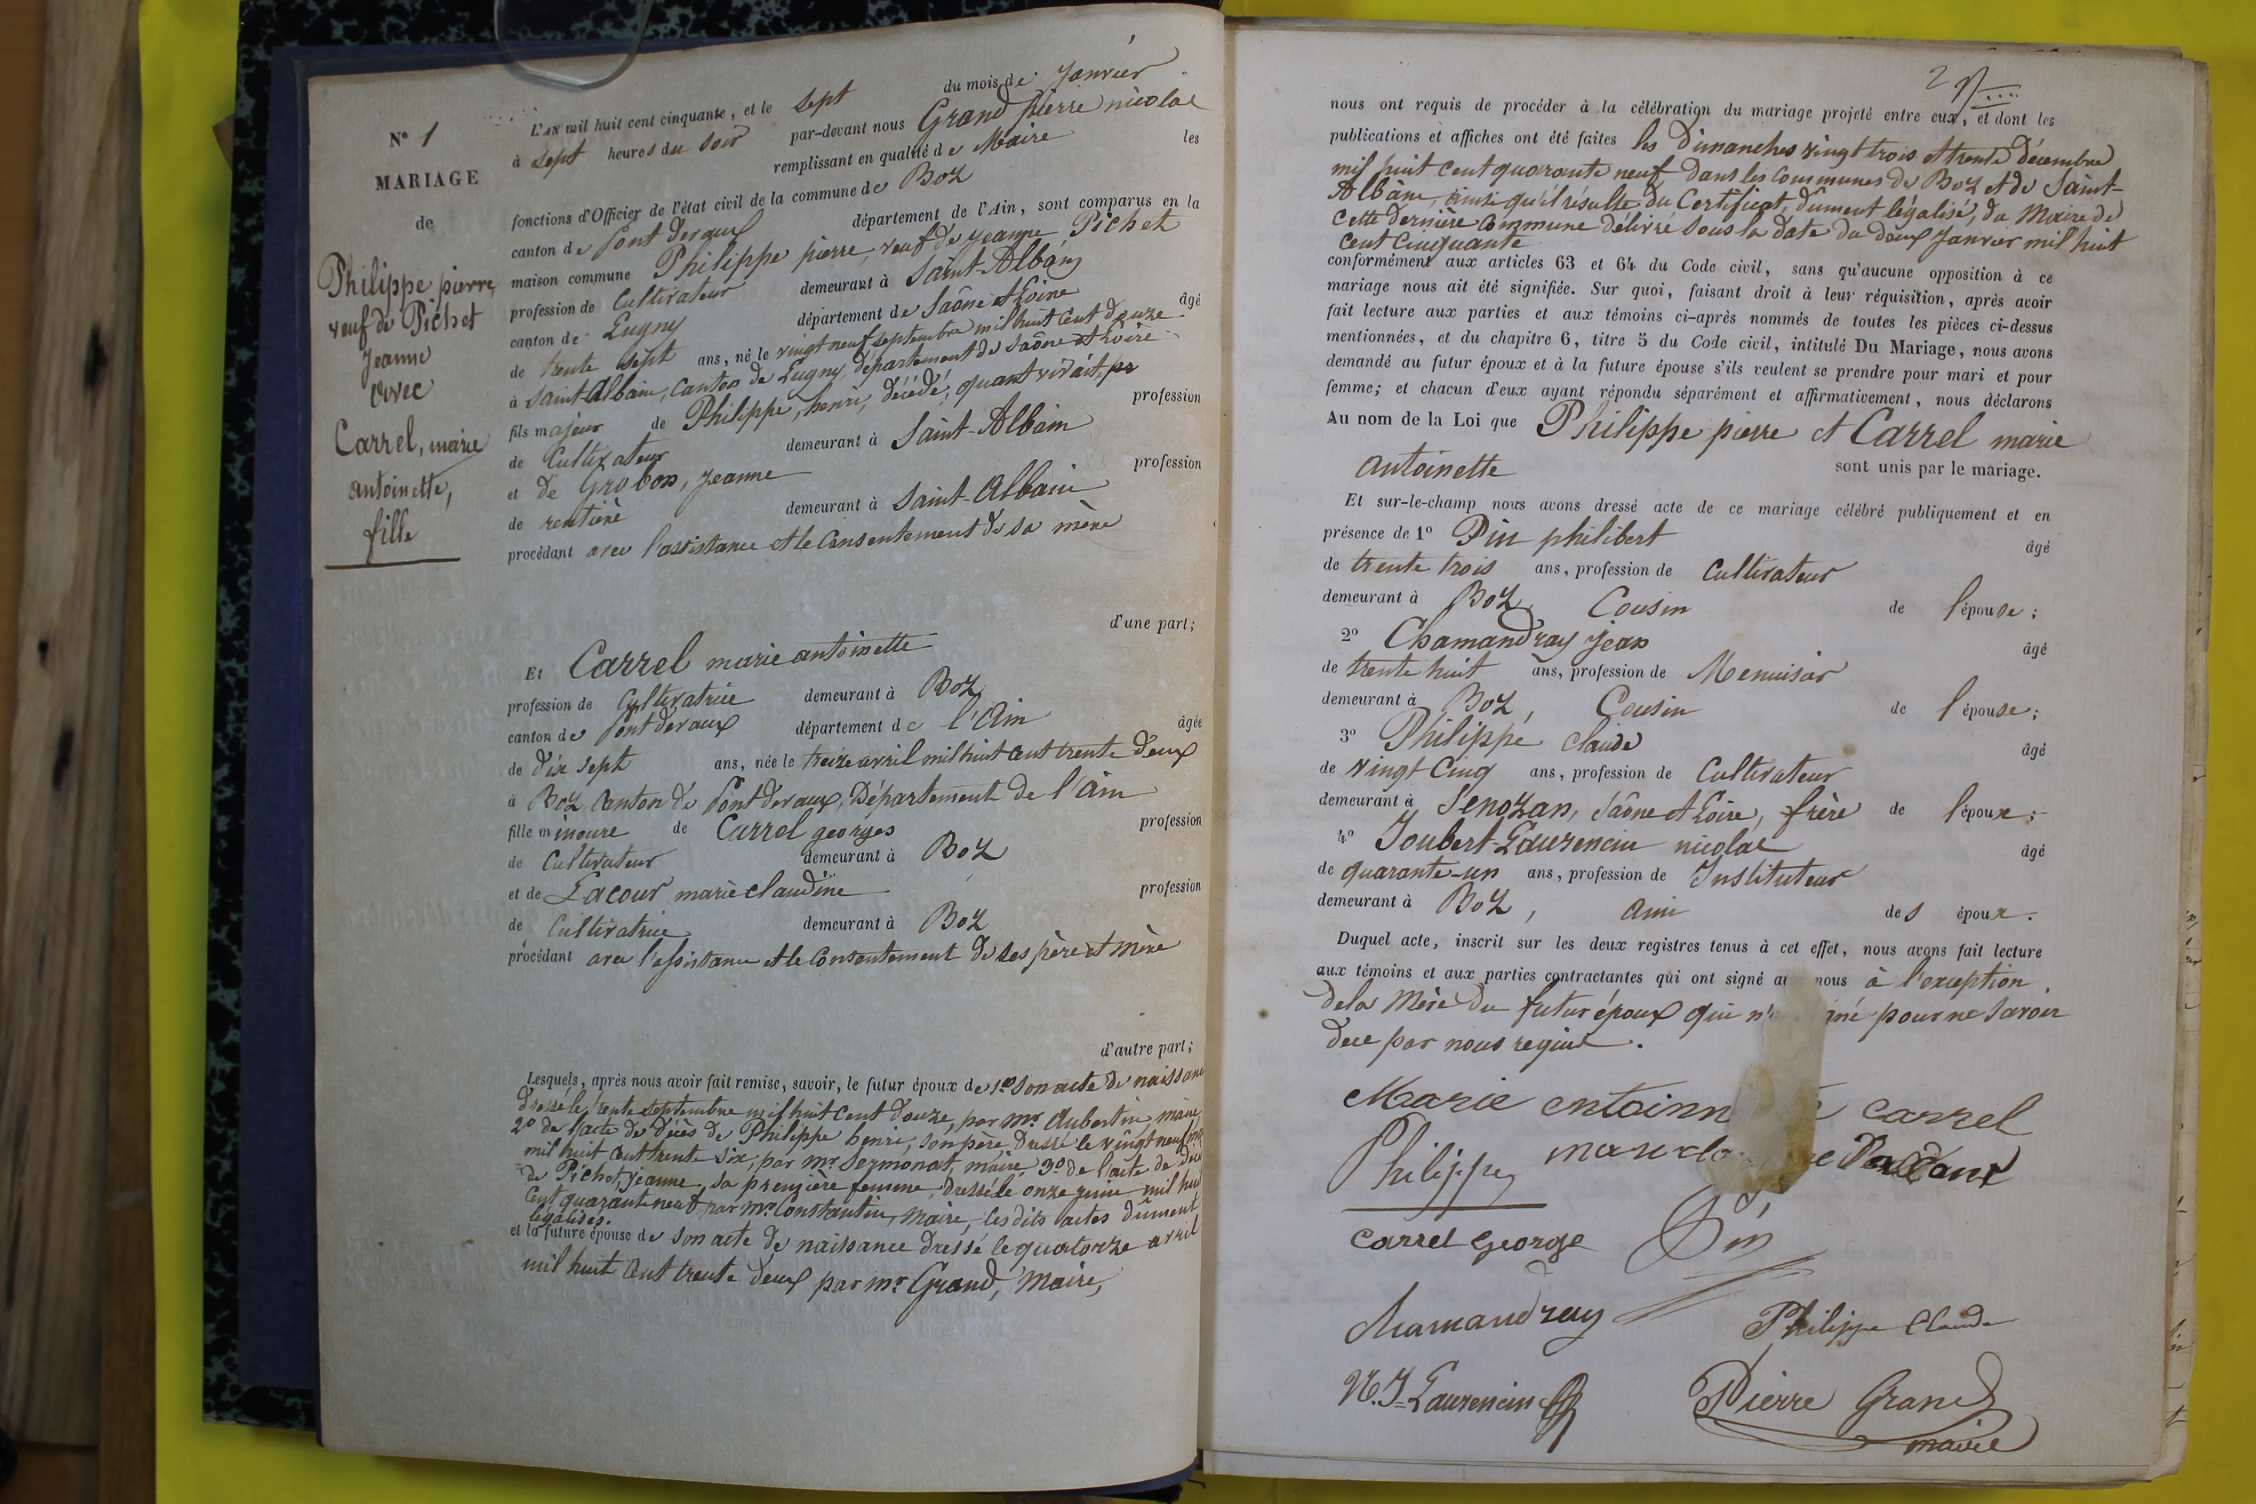 N° 1
MARIAGE
de
Philippe pierre,
veuf de Pichet
Jeanne
avec
Carrel, marie
antoinette,
fille
L'AN mil huit cent cinquante, et le sept du mois de Janvier
à sept heures du soir par-devant nous Grand pierre nicolas
remplissant en qualité de Maire les
fonctions d'Officier de l'état civil de la commune de Boz
canton de Pont devaux département de l'Ain, sont comparus en la
maison commune Philippe pierre, veuf de Jeanne Pichet
profession de Cultivateur demeurant à Saint-Albain
canton de Lugny département de Saône et Loire âgé
de trente sept ans, né le vingt neuf septembre mil huit cent douze
à Saint Albain, Canton de Lugny, département de Saône et Loire
fils majeur de Philippe, henri, décédé, quant vivait, profession
de Cultivateur demeurant à Saint-Albain
et de Grobon, Jeanne profession
de rentière demeurant à Saint-Albain
procédant avec l'assistance et le Consentement de sa mère
d'une part;
Et Carrel marie antoinette
profession de Cultivatrice demeurant à Boz
canton de Pont devaux département de l'Ain âgée
de dix sept ans, née le treize avril mil huit cent trente deux
à Boz Canton de Pont devaux, Département de l'Ain
fille mineure de Carrel georges profession
de Cultivateur demeurant à Boz
et de Lacour marie claudine profession
de Cultivatrice demeurant à Boz
procédant avec l'assistance et le Consentement de ses père et mère
d'autre part;
Lesquels, après nous avoir fait remise, savoir, le futur époux de 1° son acte de naissance
dressé le trente septembre mil huit cent douze, par mr. Aubertin, maire
2° de l'acte de décès de Philippe henri, son père, dressé le vingt neuf
mil huit cent trente six, par mr Sermonat, maire 3° de l'acte de décès
de Pichet, Jeanne, sa première femme, dressé le onze juin mil huit
Cent quarante neuf, par mr. Constantin, Maire, les dits actes dûment
légalisés.
et la future épouse de son acte de naissance dressé le quatorze avril
mil huit cent trente deux par mr. Grand, Maire,
2
nous ont requis de procéder à la célébration du mariage projeté entre eux, et dont les
publications et affiches ont été faites les Dimanches vingt trois et trente décembre
mil huit cent quarante neuf, dans les communes de Boz et de Saint-
Albain, ainsi qu'il résulte du Certificat, dûment légalisé, du Maire de
cette dernière Commune délivré sous la date du deux Janvier mil huit
cent cinquante
conformément aux articles 63 et 64 du Code civil, sans qu'aucune opposition à ce
mariage nous ait été signifiée. Sur quoi, faisant droit à leur réquisition, après avoir
fait lecture aux parties et aux témoins ci-après nommés de toutes les pièces ci-dessus
mentionnées, et du chapitre 6, titre 5 du Code civil, intitulé Du Mariage, nous avons
demandé au futur époux et à la future épouse s'ils veulent se prendre pour mari et pour
femme; et chacun d'eux ayant répondu séparément et affirmativement, nous déclarons
Au nom de la Loi que Philippe pierre et Carrel marie
antoinette sont unis par le mariage.
Et sur-le-champ nous avons dressé acte de ce mariage célébré publiquement et en
présence de 1° Pin philibert âgé
de trente trois ans, profession de Cultivateur
demeurant à Boz, Cousin de l'épouse;
2° Chamandray Jean âgé
de trente huit ans, profession de Menuisier
demeurant à Boz, Cousin de l'épouse;
3° Philippe Claude âgé
de vingt Cinq ans, profession de Cultivateur
demeurant à Senozan, Saône et Loire, frère de l'époux;
4° Joubert-Laurencin nicolas âgé
de quarante-un ans, profession de Instituteur
demeurant à Boz, ami des époux.
Duquel acte, inscrit sur les deux registres tenus à cet effet, nous avons fait lecture
aux témoins et aux parties contractantes qui ont signé nous à l'exception
de la Mère du futur époux qui pour ne savoir
de ce par nous requise.
Marie carrel
Philippe
carrel George Pin
chamandray Philippe Claude
N. J= Laurencin Pierre Grand
maire